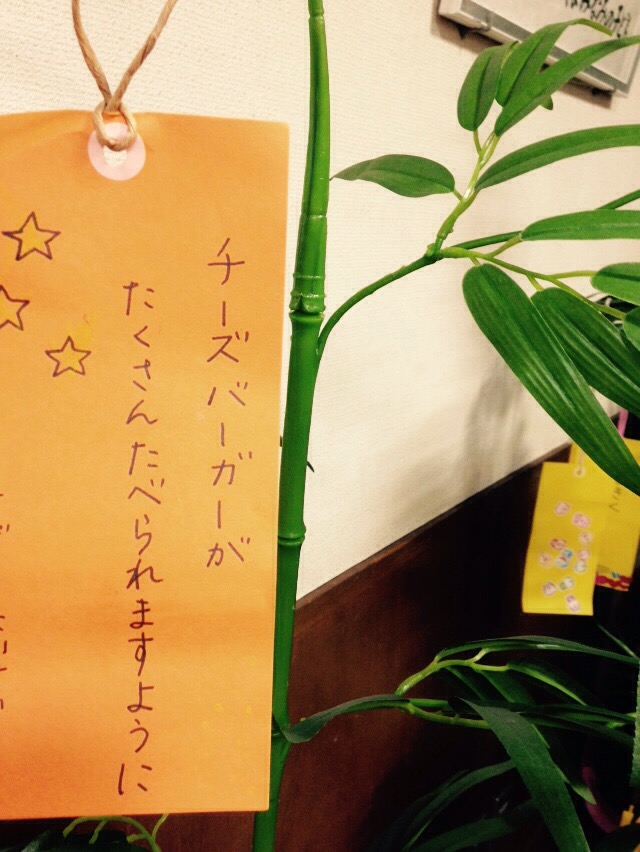 チーズバーガーが
たくさんたべられますように